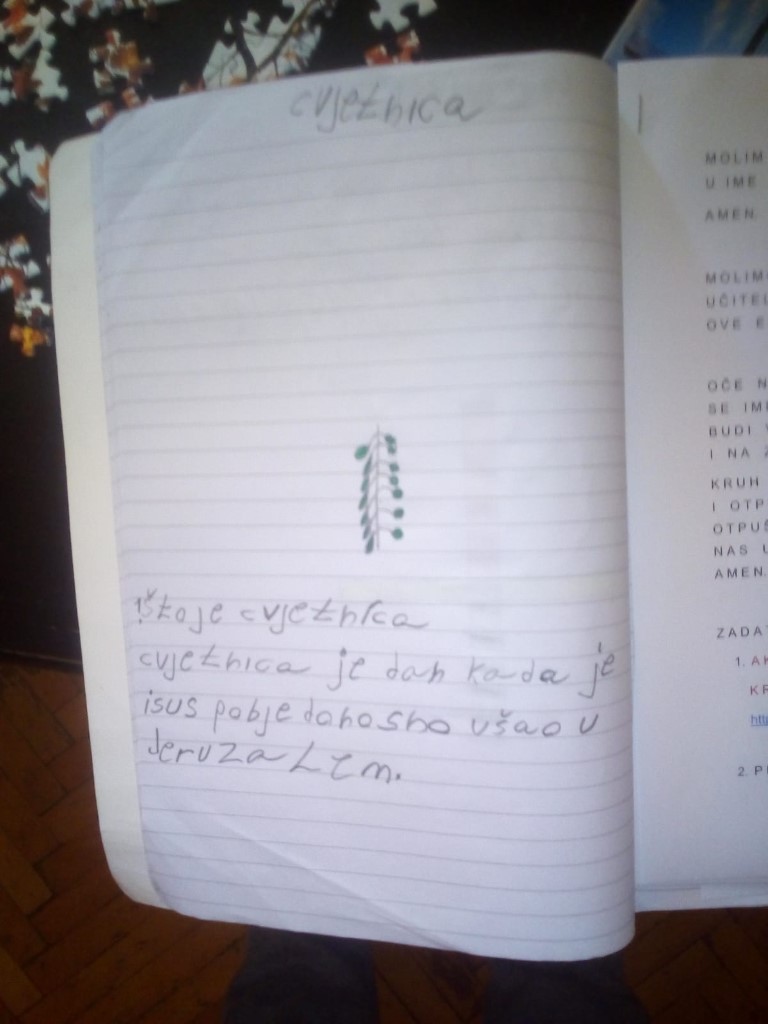 cvjetnica
!Što je cvjetnica
cvjetnica je dan kada je
isus pobjedonosno ušao u
Jeruzalem.
MOLIM
U IME
AMEN.
MOLIM
UČITEL
OVE E
OČE N
SE IM
BUDI
I NA
KRUH
I OTP
OTPUŠ
NAS U
AMEN.
ZADA
1. AK
KR
htt
2. P